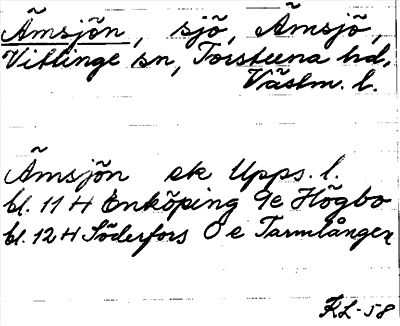 Ämsjön, sjö, Ämsjö,
Vittinge sn, Torstuna hd,
Västm. l.
Ämsjön ek Upps. l.
bl. 11 H Enköping 9e Högbo
bl. 12 H Söderfors 0 e Tarmlången
KL-58